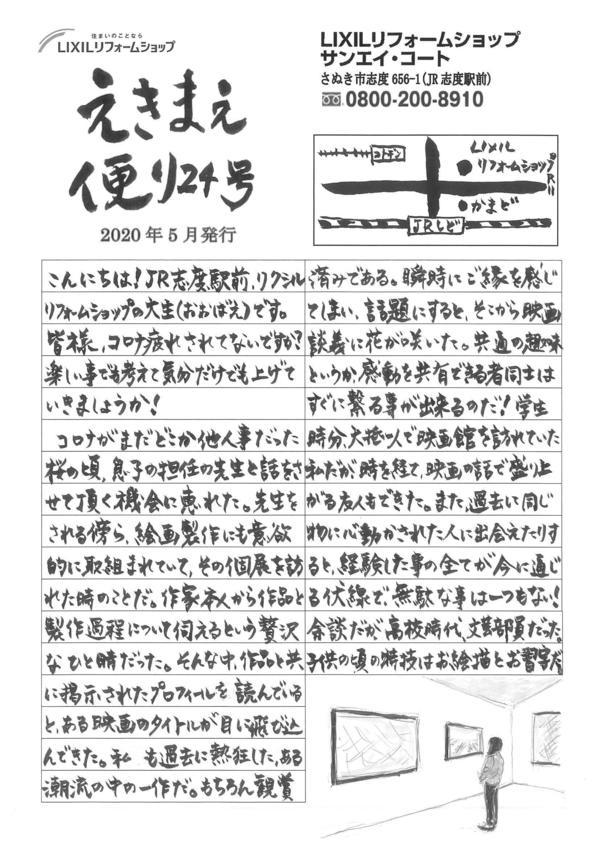 住まいのことなら
LIXILリフォームショップ
LIXILリフォームショップ
サンエイ・コート
さぬき市志度 656-1(JR志度駅前)
0800-200-8910
えきまえ
便り24号
2020年5月発行
コトデン
LIXIL
リフォームショップ
R11
かまど
JRしど
こんにちは!JR志度駅前、リクシル
リフォームショップの大生(おおばえ)です。
皆様、コロナ疲れされてないですか?
楽しい事でも考えて気分だけでも上げて
いきましょうか!
コロナがまだどこか他人事だった
桜の頃、息子の担任の先生と話をさ
せて頂く機会に恵れた。先生を
される傍ら、絵画製作にも意欲
的に取組まれていて、その個展を訪
れた時のことだ。作家本人から作品と
製作過程について伺えるという贅沢
なひと時だった。そんな中、作品と共
に掲示されたプロフィールを読んでいる
と、ある映画のタイトルが目に飛び込
んできた。私も過去に熱狂した、ある
潮流の中の一作だ。もちろん観賞
済みである。瞬時にご縁を感じ
てしまい、話題にすると、そこから映画
談義に花が咲いた。共通の趣味
というか、感動を共有できる者同士は
すぐに繋る事が出来るのだ!学生
時分、大抵一人で映画館を訪れていた
私だが、時を経て、映画の話で盛り上
がる友人もできた。また、過去に同じ
物に心動かされた人に出会えたりす
ると、経験した事の全てが今に通じ
る伏線で、無駄な事は一つもない!
余談だが、高校時代、文芸部員だった。
子供の頃の特技はお絵描とお習字だ